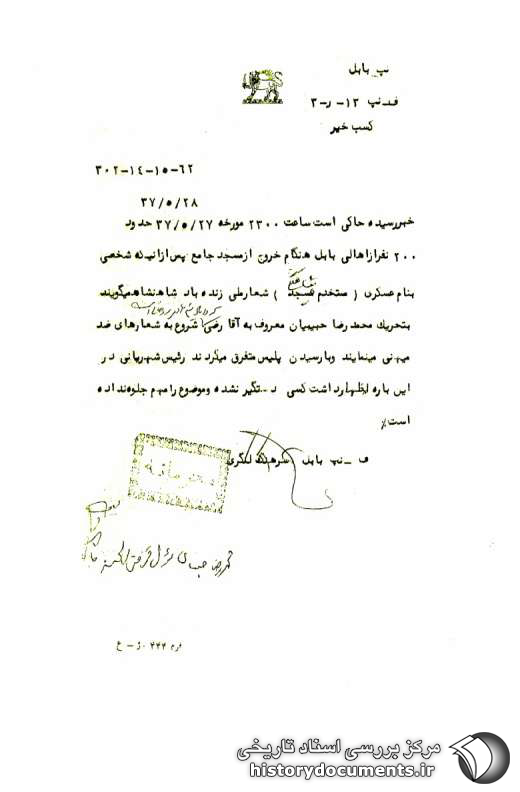 نپ بابل
ف-نپ ۱۳-ر-۳
کسب خبر
۳۰۲-۱٤-۱۵-۶۲
۳۷/۵/۲۸
خبررسیده حاکی است ساعت ۲۳۰۰ مورخه ۳۷/۵/۲۷ حدود
۲۰۰ نفرازاهالی بابل هنگام خروج ازمسجد جامع پس ازانیکه شخصی
بنام عسکری (مستخدم مسجد) شعارملی زنده باد شاهنشاه میگویند
بتحریک محمد رضا حبیبیان معروف به آقا رضی شروع به شعارهای ضد
میهنی مینمایند وبارسیدن پلیس متفرق میگردند رئیس شهربانی در
این باره اظهارداشت کسی دستگیر نشده وموضوع رامهم جلوه نداده
است٪
ف-نپ بابل سرهنگ لنگری
محرمانه
فرم ۴۴۴ ۰
مرکز بررسی اسناد تاریخی
historydocuments.ir